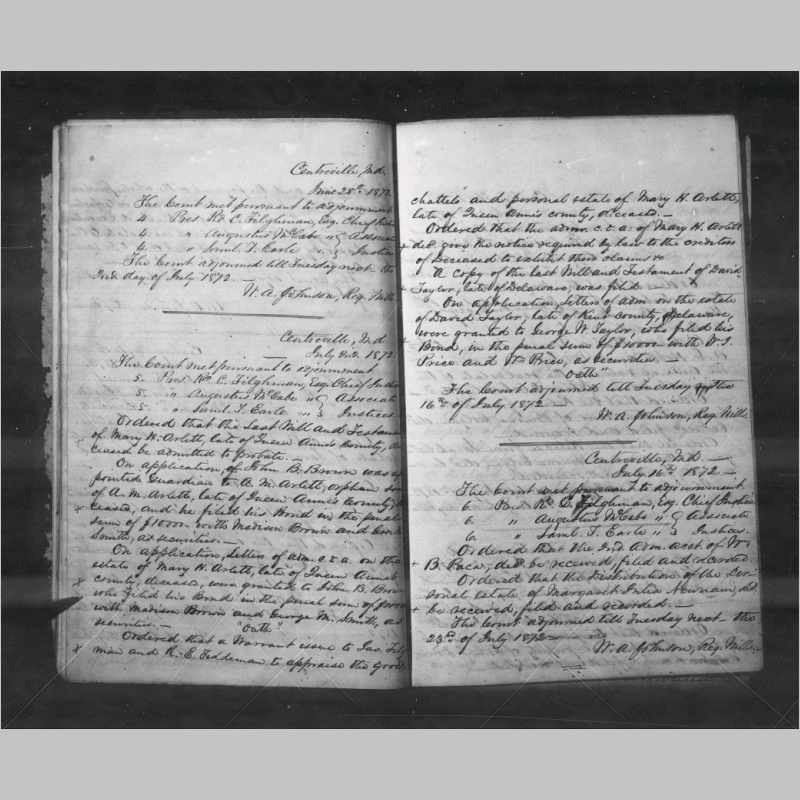 Centreville, Md.
June 25th 1872
The Court met pursuant to adjournment
4 Pres. Wm C. Tilghman, Esq. Chief Just
4 " Augustus McCabe " Associa
4 " Saml. T. Earle " Justic
The Court adjourned till Tuesday next the
2nd day of July 1872
W. A. Johnson, Reg. Wills
Centreville, Md
July 2nd 1872
The Court met pursuant to adjournment
5 Pres. Wm C. Tilghman, Esq. Chief Justi
5 " Augustus McCabe " Associate
5 " Saml. T. Earle " Justices
Ordered that the Last Will and Testamen
of Mary H. Arlett, late of Queen Ann's County, de
ceased be admitted to probate. —
On application, of John B. Brown was ap
pointed Guardian to A. M. Arlett, orphan
of A. M. Arlett, late of Queen Ann's County,
ceased, and he filed his Bond in the penal
sum of $1000 with Madison Brown and
Smith, as securities. —
On application, Letters of adm. c.t.a. on the
estate of Mary H. Arlett, late of Queen Ann's
county, deceased, were granted to John B. Brow
who filed his Bond in the penal sum of
with Madison Brown and George M. Smith, as
securities. — "Oath"
Ordered that a Warrant issue to Jas. Tilgh
man and R. E. Feddeman to appraise the good
chattels and personal estate of Mary H. Arlett,
late of Queen Ann's county, deceased. —
Ordered that the admr. c.t.a. of Mary H. Arlett
decd. give the notice required by law to the creditors
of deceased to exhibit their claims &c
A Copy of the last Will and Testament of David
Taylor, late of Delaware, was filed
On application, Letters of adm. on the estate
of David Taylor, late of Kent County, Delaware,
were granted to George W. Taylor, who filed his
Bond, in the penal sum of with
Price and Wm Price, as securities —
Oath"
The Court adjourned till Tuesday the
16th of July 1872
W. A. Johnson, Reg. Wills
Centreville, Md. —
July 16th 1872 —
The Court met pursuant to adjournment
6 Pres. Wm C. Tilghman, Esq. Chief Justice
6 " Augustus McCabe " Associate
6 " Saml. T. Earle " Justices.
Ordered that the 2nd Adm. acct. of Wm
B. Paca, decd. be received, filed and recorded.
Ordered that the Distribution of the Per
sonal estate of Margaret Newnam, decd
be received, filed and recorded. —
The Court adjourned till Tuesday next the
23rd of July 1872 —
W. A. Johnson, Reg. Wills